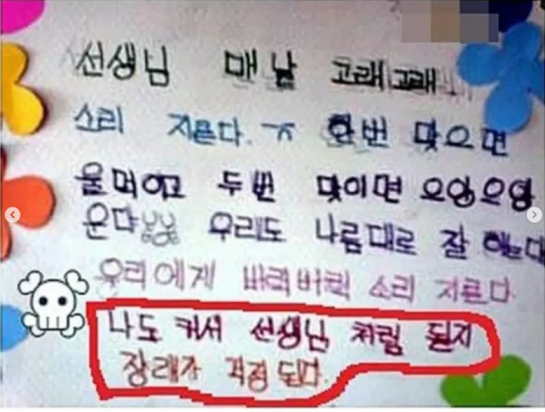 선생님 매날 고래고래
소리 지른다. 한번 맞으면
울먹이고 두번 맞이면 으앙으앙
운다 우리도 나름대로 잘 하는데
우리에게 버럭버럭 소리 지른다
나도 커서 선생님 처럼 될지
장래가 걱정 된다.